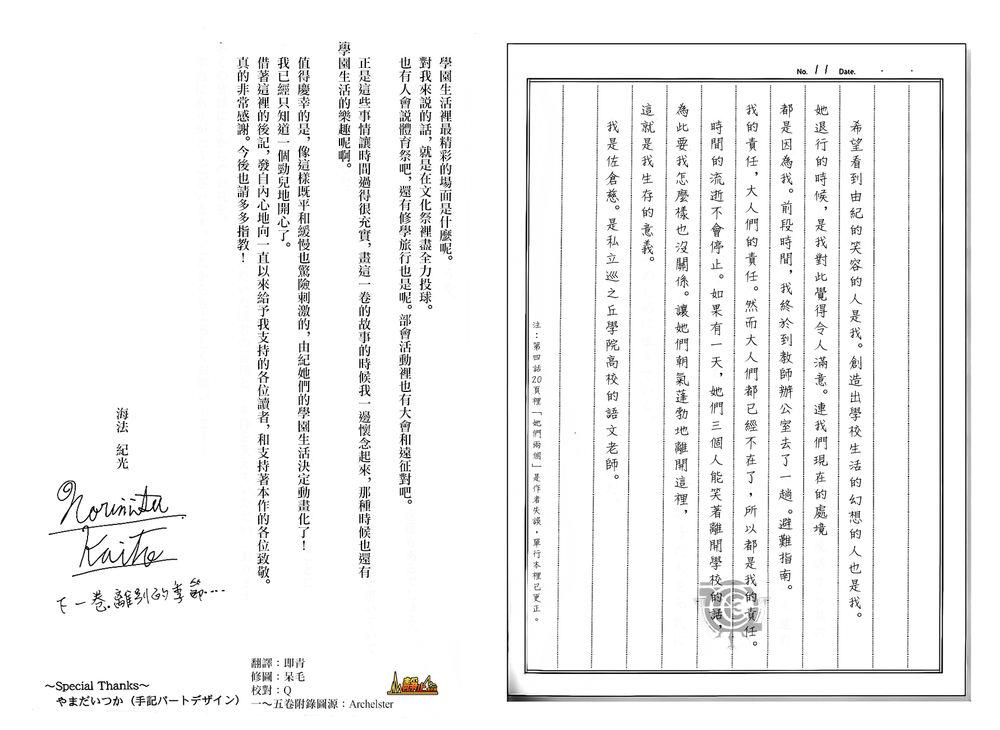 No. 11 Date. ・ ・
希望看到由紀的笑容的人是我。創造出學校生活的幻想的人也是我。
她退行的時候，是我對此覺得令人滿意。連我們現在的處境
都是因為我。前段時間，我終於到教師辦公室去了一趟。避難指南。
我的責任，大人們的責任。然而大人們都已經不在了，所以都是我的責任。
時間的流逝不會停止。如果有一天，她們三個人能笑著離開學校的話，
為此要我怎麼樣也沒關係。讓她們朝氣蓬勃地離開這裡，
這就是我生存的意義。
我是佐倉慈。是私立巡之丘學院高校的語文老師。
注：第四話20頁裡「她們兩個」是作者失誤，單行本裡已更正。
學園生活裡最精彩的場面是什麼呢。
對我來說的話，就是在文化祭裡盡全力投球。
也有人會說體育祭吧，還有修學旅行也是呢。部會活動裡也有大會和遠征對吧。
正是這些事情讓時間過得很充實，畫這一卷的故事的時候我一邊懷念起來，那種時候也還有
學園生活的樂趣呢啊。
值得慶幸的是，像這樣既平和緩慢也驚險刺激的，由紀她們的學園生活決定動畫化了！
我已經只知道一個勁兒地開心了。
借著這裡的後記，發自內心地向一直以來給予我支持的各位讀者，和支持著本作的各位致敬。
真的非常感謝。今後也請多多指教！
海法 紀光
Norimitsu
Kaiho
下一卷.離別的季節…
～Special Thanks～
やまだいつか（手記パートデザイン）
翻譯：即青
修圖：呆毛
校對：Q
一～五卷附錄圖源：Archelster